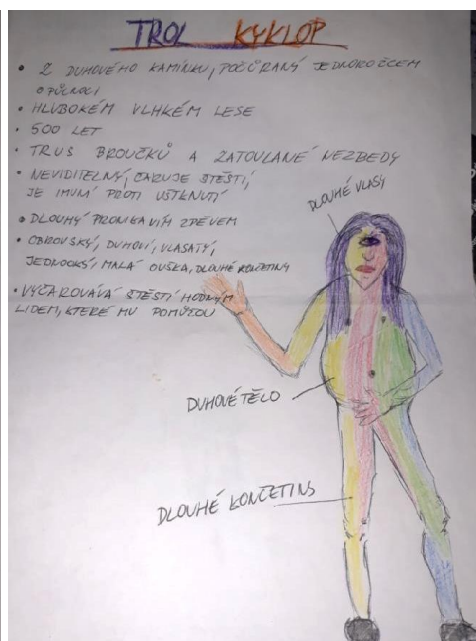 TROL KYKLOP
• Z DUHOVÉHO KAMÍNKU, POČŮRANÝ JEDNOROČCEM
O PŮLNOCI
• HLUBOKÉM VLHKÉM LESE
• 500 LET
• TRUS BROUČKŮ A ZATOULANÉ NEZBEDY
• NEVIDITELNÝ, ČARUJE ŠTĚSTÍ,
JE IMUNÍ PROTI UŠTKNUTÍ
• DLOUHÝ PRONIKAVÍM ZPĚVEM
• OBROVSKÝ, DUHOVÍ, VLASATÝ,
JEDNOOKÝ, MALÁ OUŠKA, DLOUHÉ KONČETINY
• VYČAROVÁVÁ ŠTĚSTÍ HODNÝM
LIDEM, KTERÉ MU POMŮŽOU
DLOUHÉ VLASY
DUHOVÉ TĚLO
DLOUHÉ KONČETINY